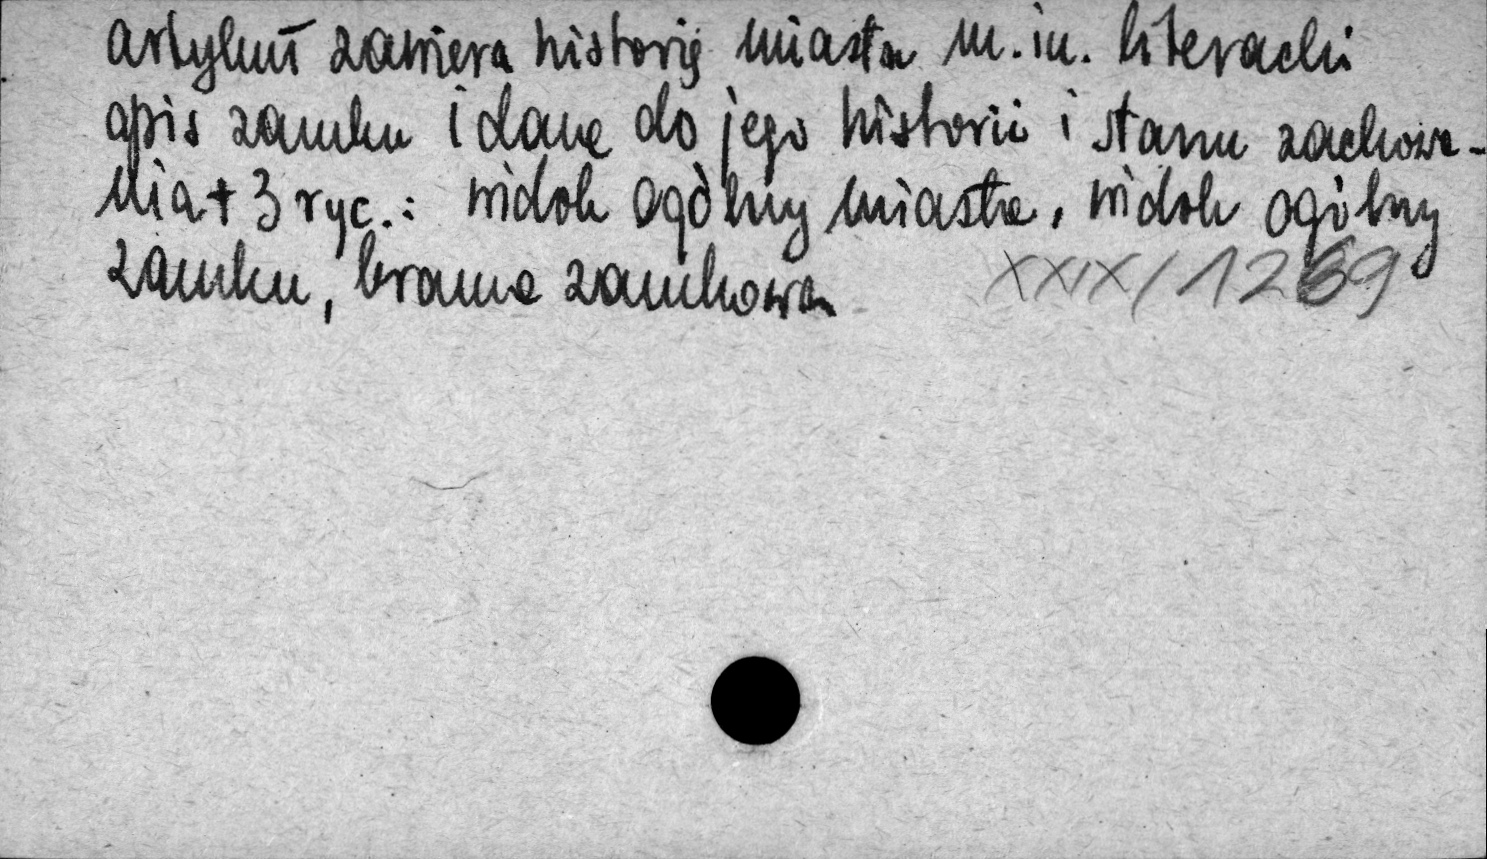 artykuł zawiera historię miasta m.in. literacki
opis zamku i dane do jego historii i stanu zachowa-
nia + 3 ryc.: widok ogólny miasta, widok ogólny
zamku, brama zamkowa XXIX/1269